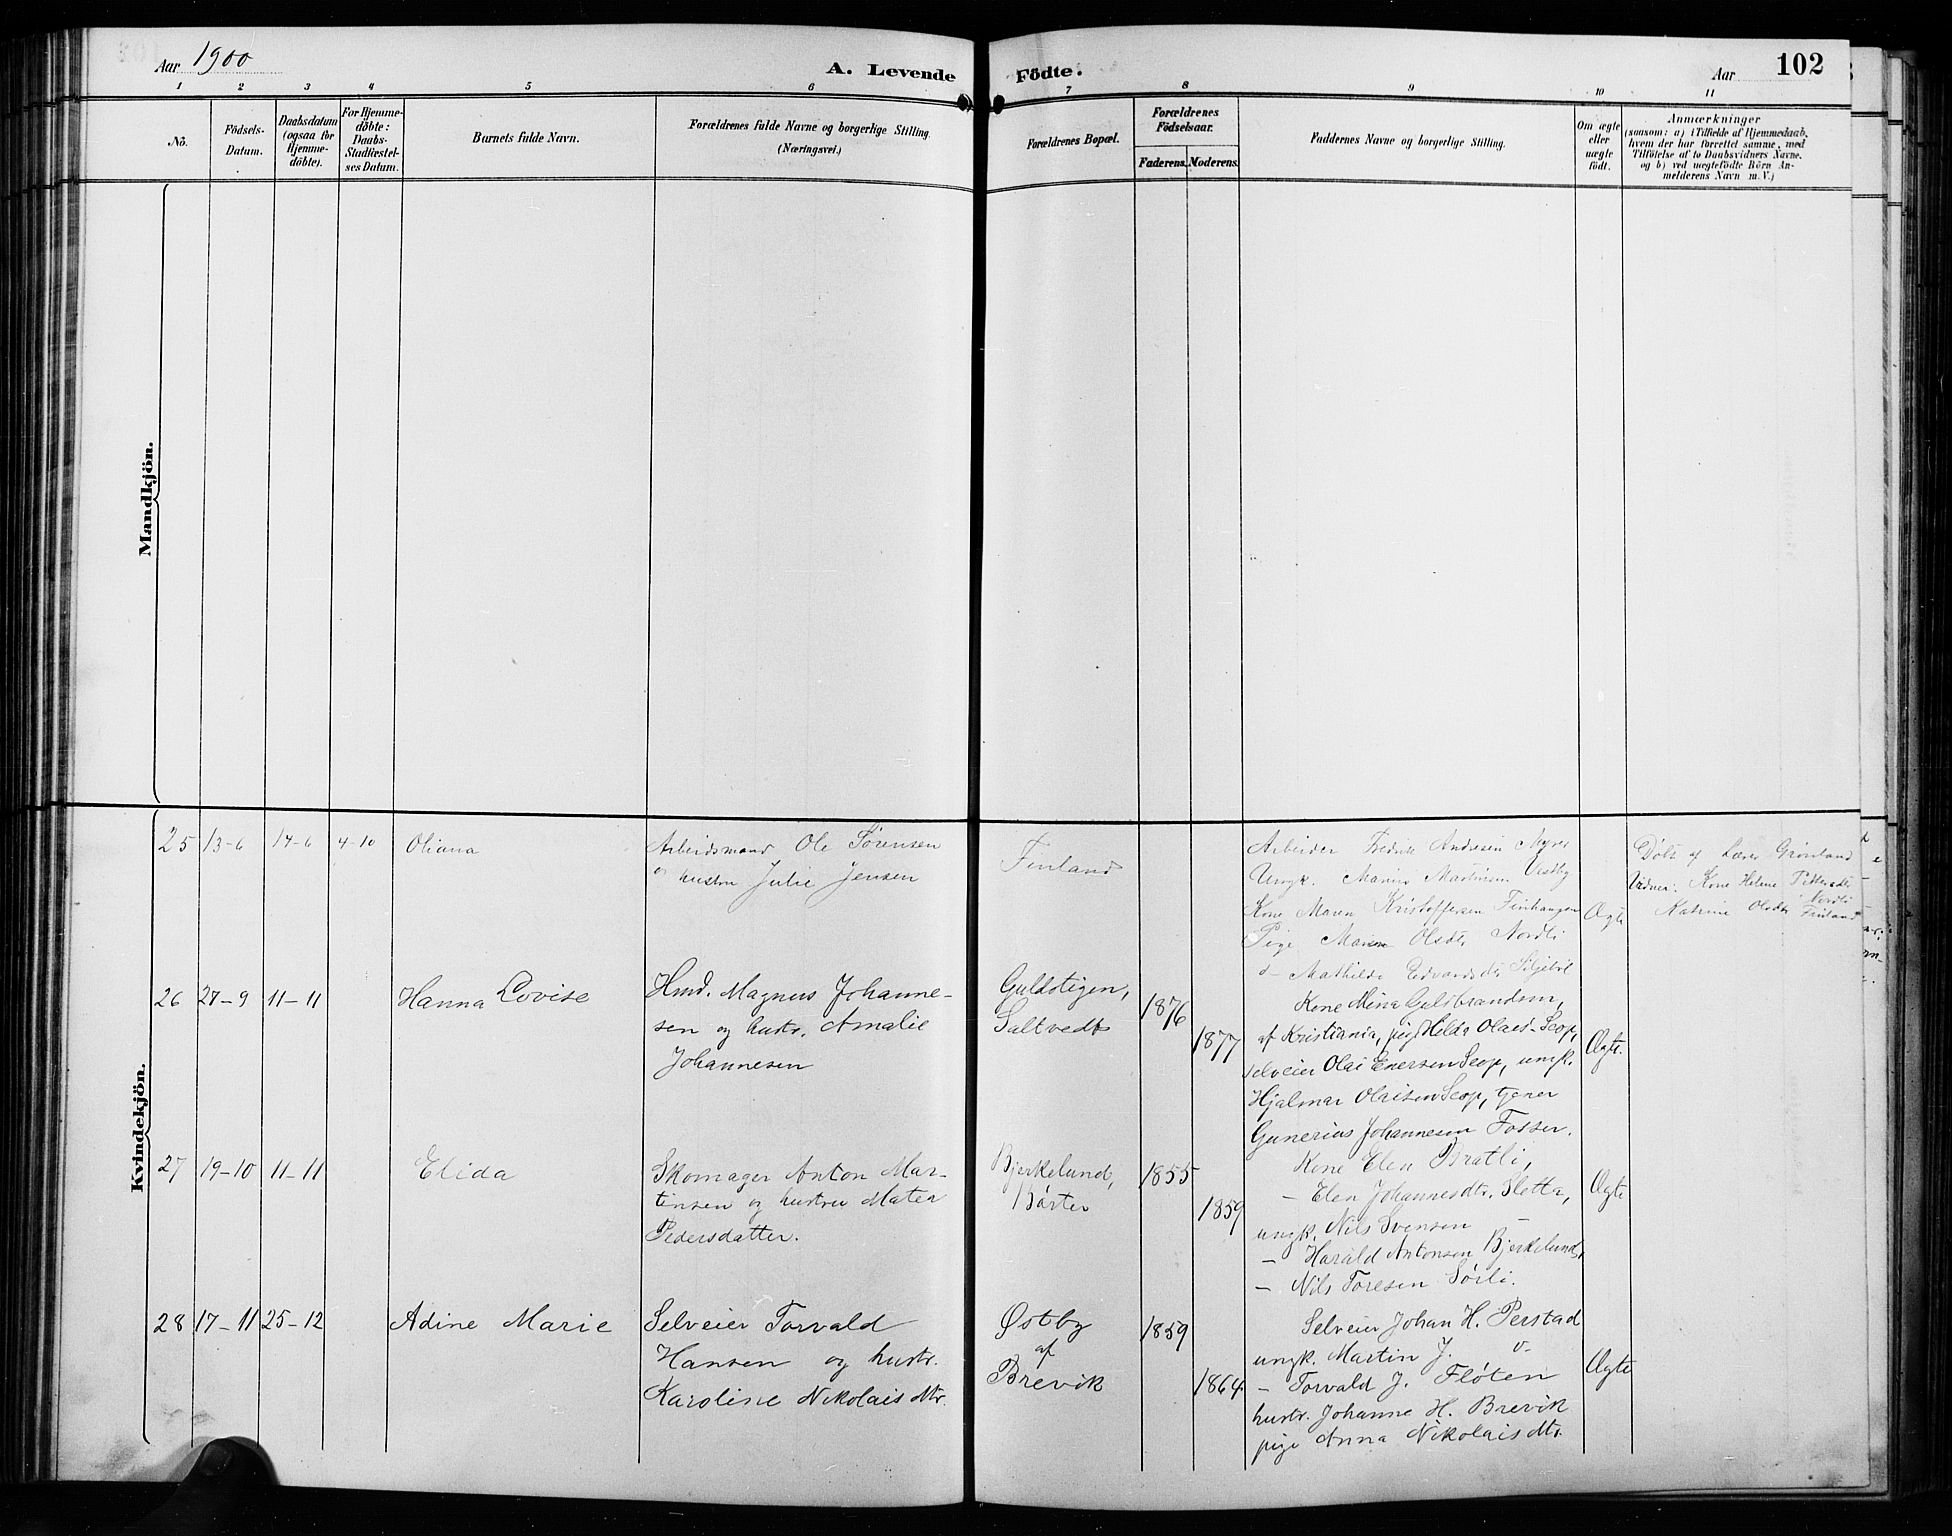 Aar 1900
A. Levende Födte.
Aar
102
1 2 3 4 5 6 7 8 9 10 11
No.
Födsels-
Datum.
Daabsdatum
(ogsaa for
Hjemme-
döbte).
For Hjemme-
döbte:
Daabs-
Stadfæstel-
ses Datum.
Barnets fulde Navn.
Forældrenes fulde Navne og borgerlige Stilling.
(Næringsvei.)
Forældrenes Bopæl.
Forældrenes
Födselsaar.
Faderens. Moderens.
Faddernes Navne og borgerlige Stilling.
Om ægte
eller
uægte
födt.
Anmærkninger
(saasom: a) i Tilfælde af Hjemmedaab,
hvem der har forrettet samme, med
Tilföielse af to Daabsvidners Navne.
og b) ved uægtefödte Börn An-
melderens Navn m. V.)
Mandkjön.
Kvindekjön.
25 13-6 14-6 4-10 Oliana
Arbeidsmand Ole Sørensen
og hustru Julie Jensen
Finland
Arbeider Fredrik Andresen Myrer
Ungk. Marius Martinsen Vestby
Kone Maren Kristoffersen Finhaugen
Pige Maren Olsdtr Nordli
d- Mathilde Edvardsdtr
Ægte
Døbt af Lærer Grønland
Vidner: Kone Helene Pettersdtr
Nordli
Katrine Olsdtr Finland
26 27-9 11-11 Hanna Lovise
Hmd. Magnus Johanne-
sen og hustr. Amalie
Johannesen
Guldstigen,
Saltvedt
1876
1877
Kone Mina Gulbrandsen,
af Kristiania, pige Hilda Olaisd- Scop,
selveier Olai Enersen Scop, ungk.
Hjalmar Olaisen Scop, tjener
Gunerius Johannesen Fosser.
Ægte.
27 19-10 11-11 Elida
Skomager Anton Mar-
tinsen og hustru Matea
Pedersdatter.
Bjerkelund,
Børter
1855
1859
Kone Elen Bratli,
- Elen Johannesdtr. Sletta,
ungk. Nils Svensen -
- Harald Antonsen Bjerkelund,
- Nils Toresen Sørli.
Ægte
28 17-11 25-12 Adine Marie
Selveier Torvald
Hansen og hustr.
Karoline Nikolaisdtr.
Østby
af
Brevik
1859
1864
Selveier Johan H. Perstad
ungk. Martin J. d-
- Torvald J. Fløten
hustr. Johanne H. Brevik
pige Anna Nikolaisdtr.
Ægte